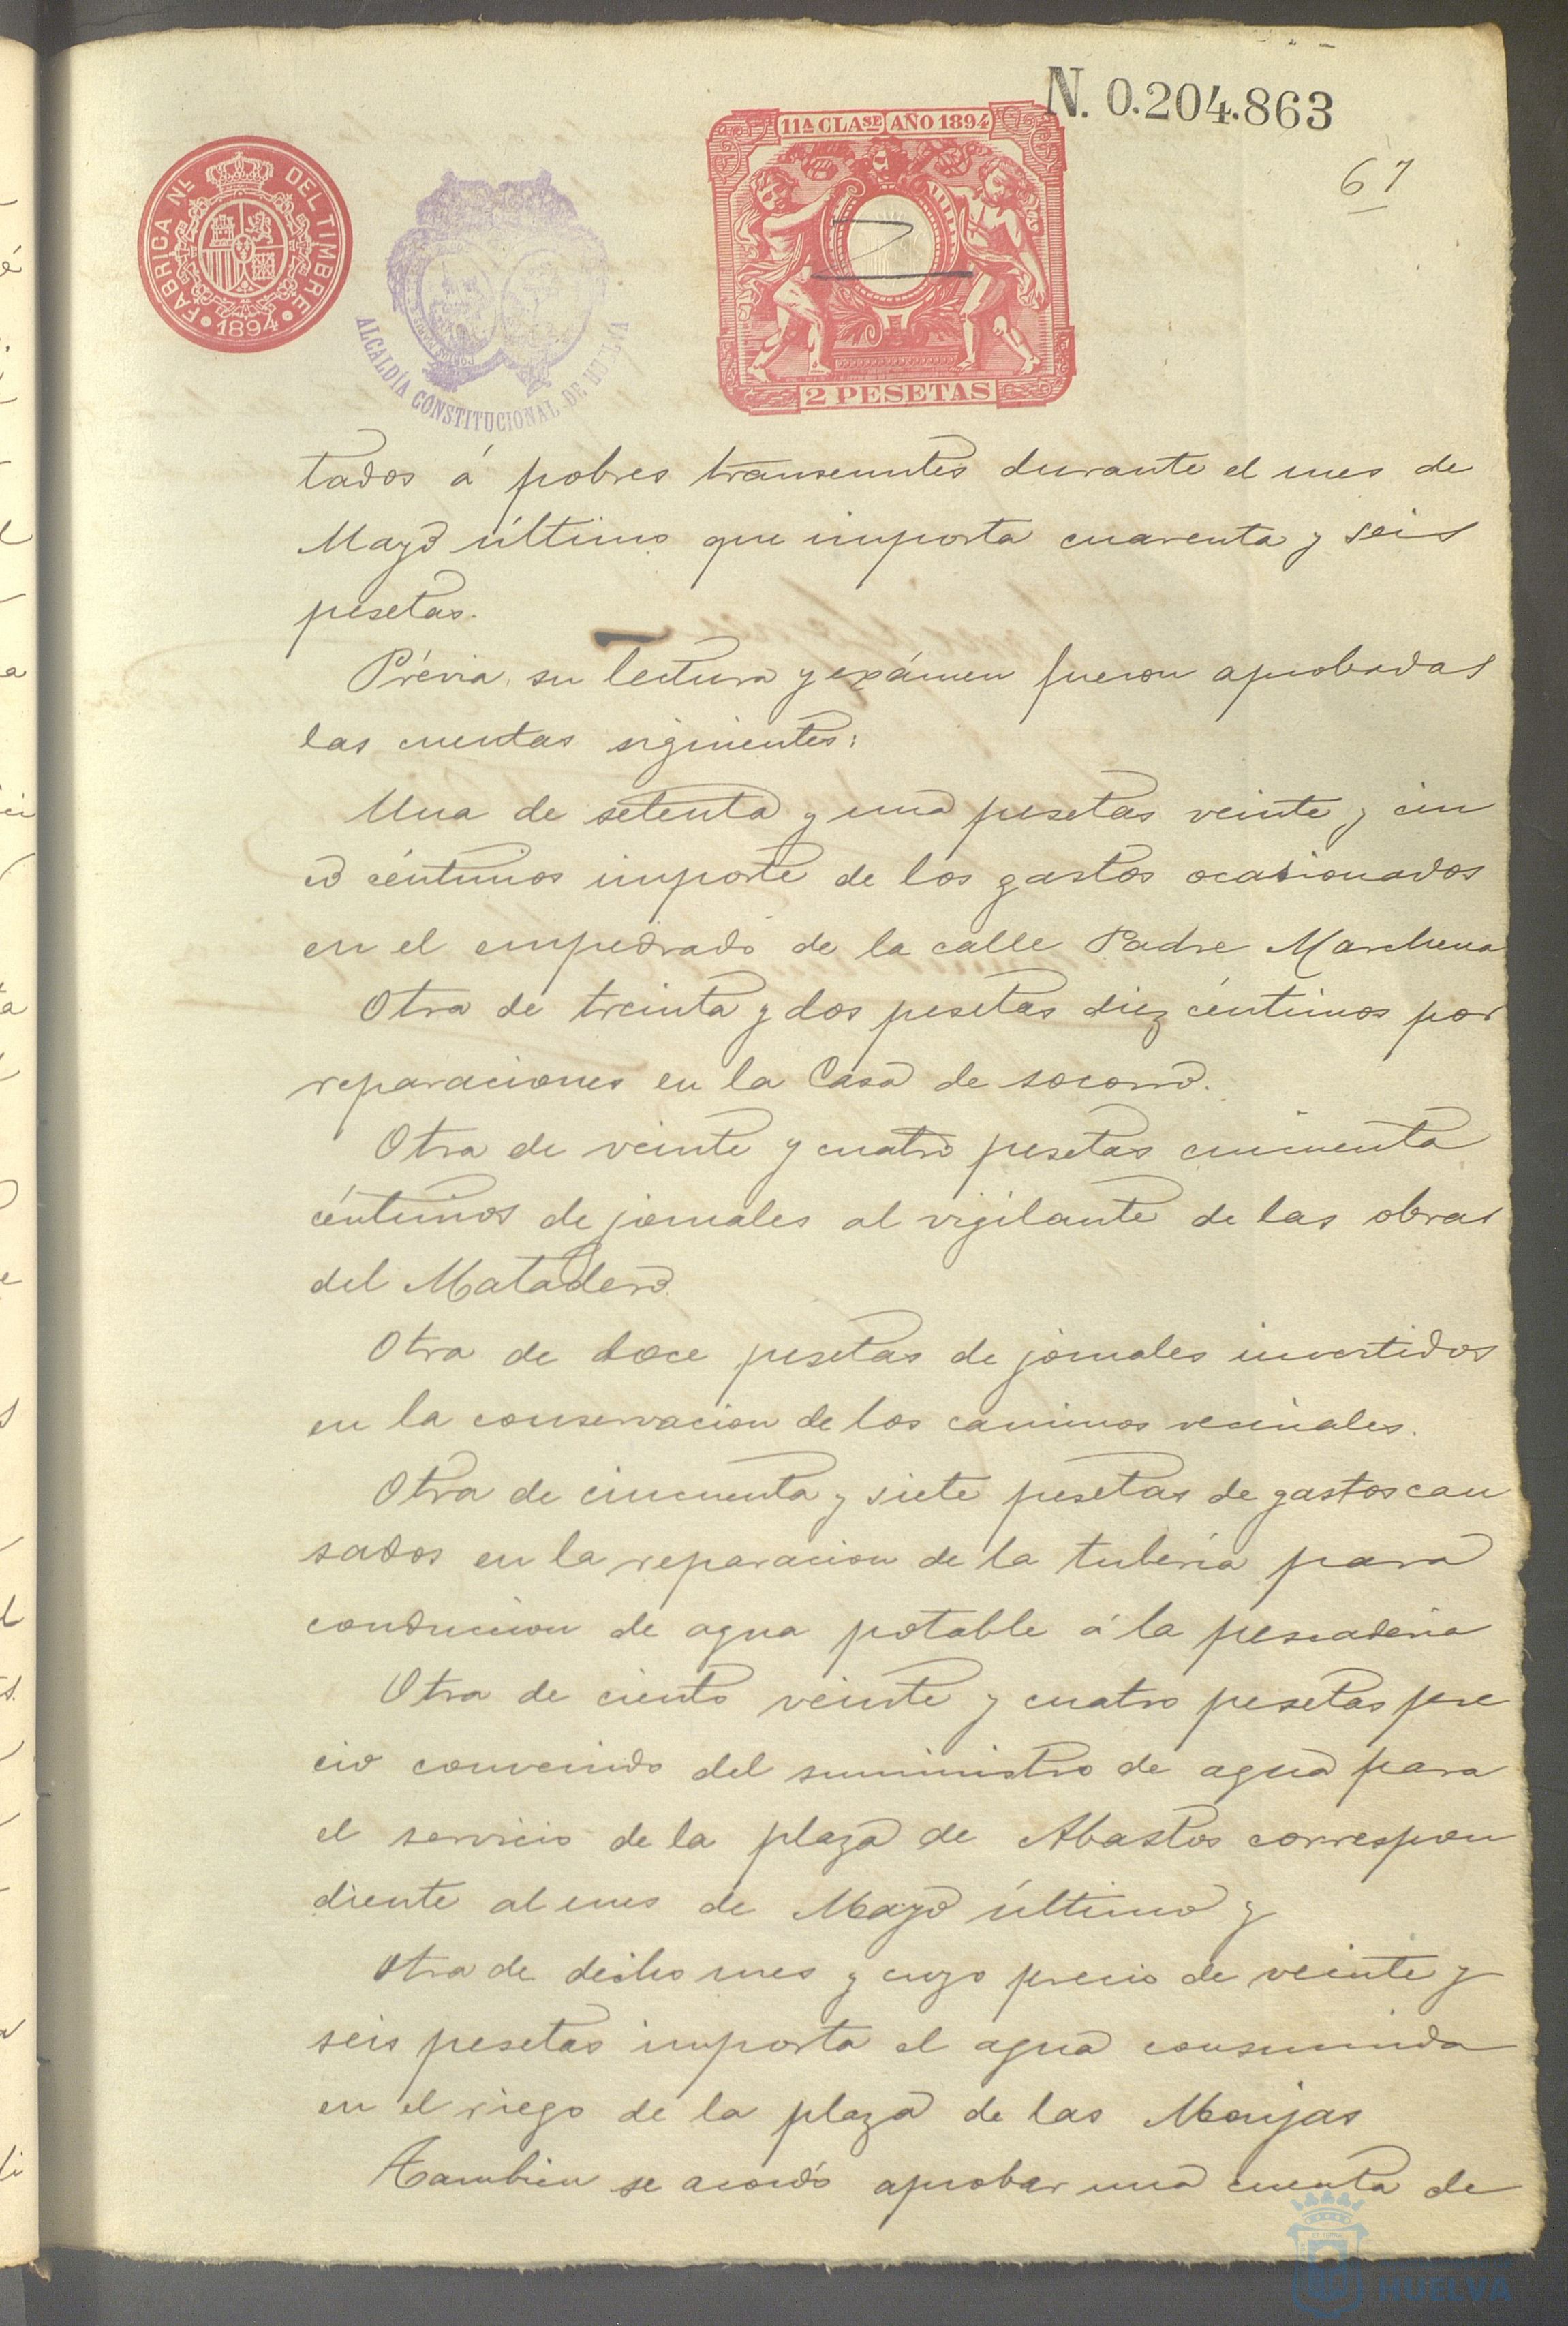 N. 0.204.863
67
11ª CLASE AÑO 1894
FABRICA NL. DEL TIMBRE
1894
ALCALDÍA CONSTITUCIONAL DE HUELVA
2 PESETAS
tados á pobres transeuntes durante el mes de
Mayo último que importa cuarenta y seis
pesetas.
Prévia su lectura y exámen fueron aprobadas
las cuentas siguientes:
Una de setenta y una pesetas veinte y cin
co céntimos importe de los gastos ocasionados
en el empedrado de la calle Padre Marchena
Otra de treinta y dos pesetas diez céntimos por
reparaciones en la Casa de socorro.
Otra de veinte y cuatro pesetas cincuenta
céntimos de jornales al vigilante de las obras
del Matadero.
Otra de doce pesetas de jornales invertidos
en la conservacion de los caminos vecinales.
Otra de cincuenta y siete pesetas de gastos cau
sados en la reparacion de la tubería para
conduccion de agua potable á la pescaderia
Otra de ciento veinte y cuatro pesetas pre
cio convenido del suministro de agua para
el servicio de la plaza de Abastos correspon
diente al mes de Mayo último y
Otra de dicho mes y cuyo precio de veinte y
seis pesetas importa el agua consumida
en el riego de la plaza de las Monjas
Tambien se acordó aprobar una cuenta de
HUELVA